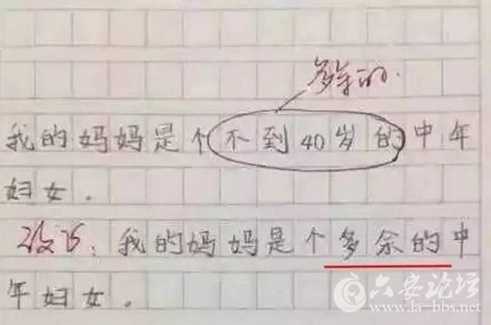 多余的.
我的妈妈是个不到40岁的中年
妇女.
改正:我的妈妈是个多余的中
年妇女.
六安论坛
www.la-bbs.net